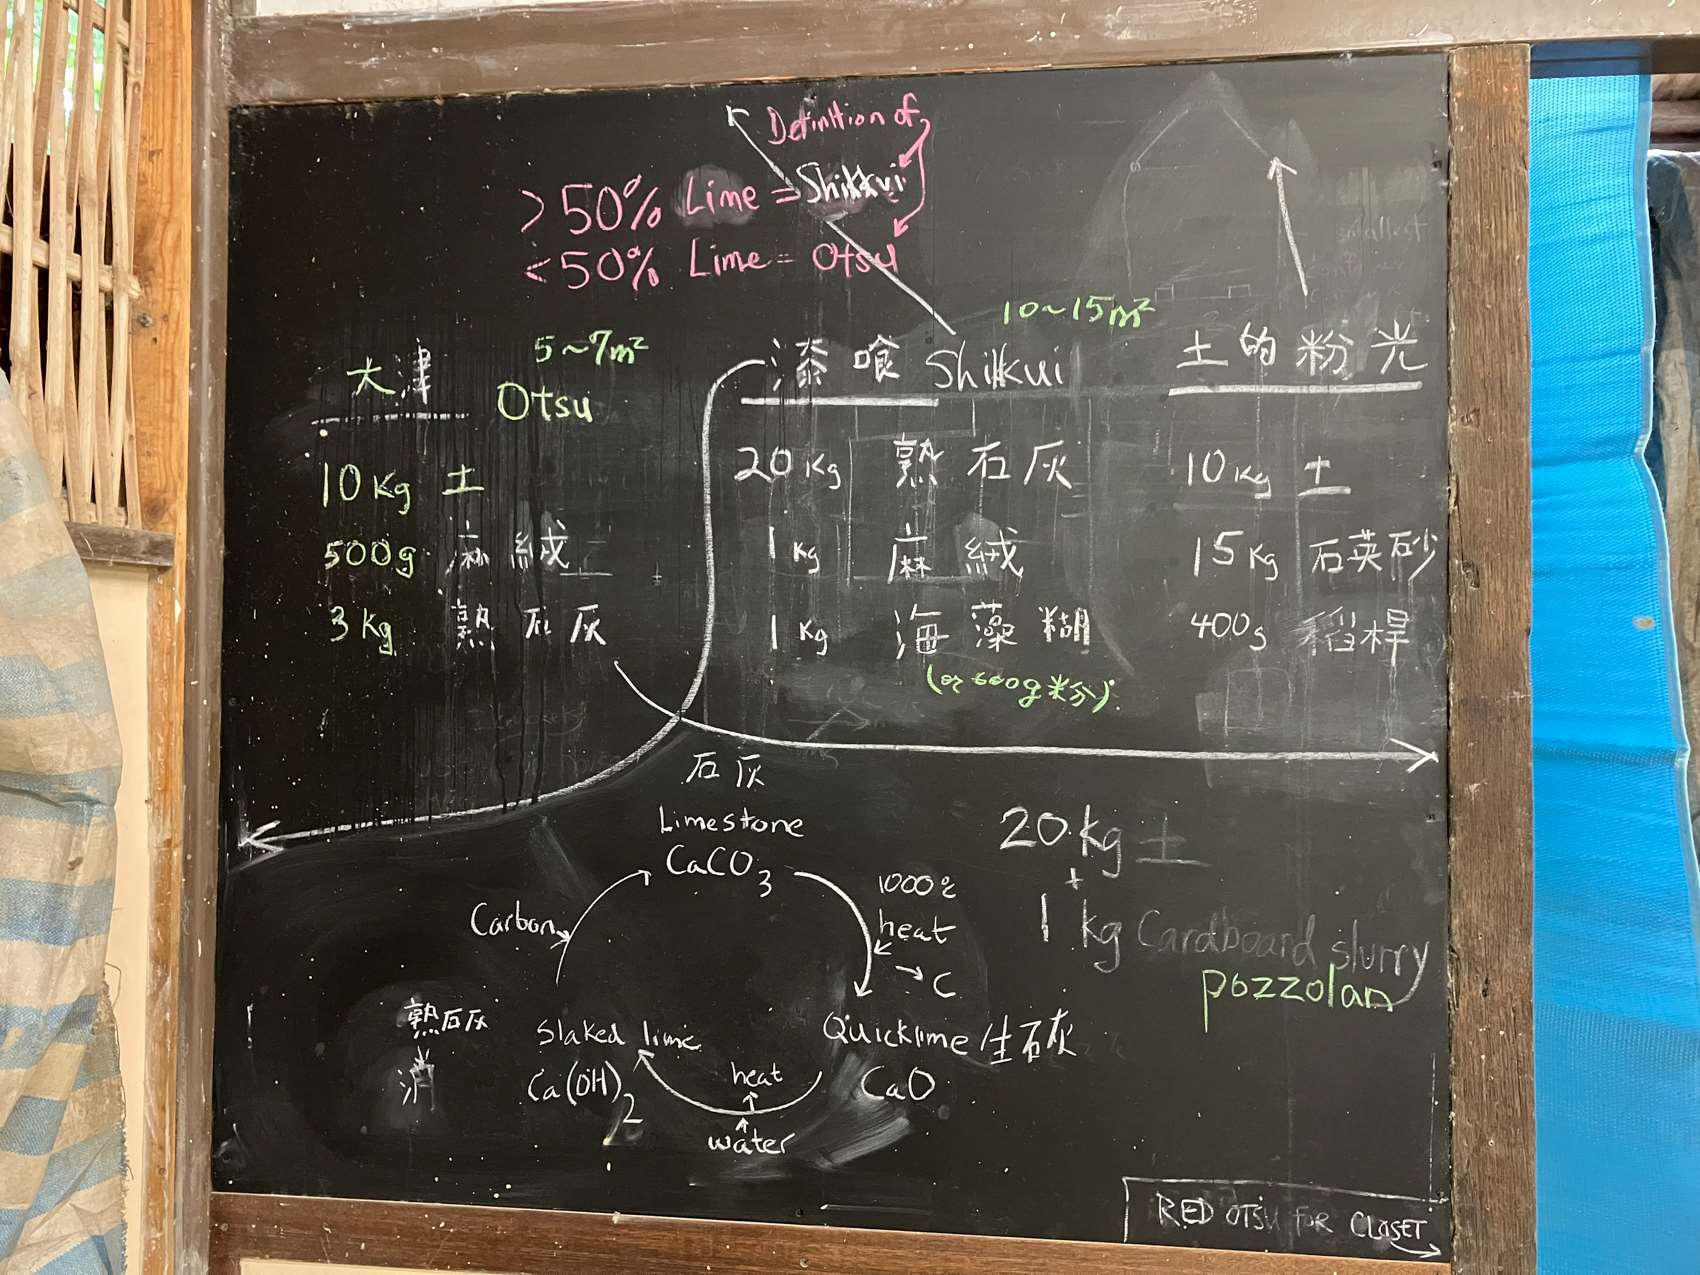 Definition of
>50% Lime = Shikkui
<50% Lime = Otsu
大津 5~7m²
Otsu
10 Kg 土
500g 麻絨
3 Kg 熟石灰
10~15m²
漆喰 Shikkui
20 Kg 熟石灰
1 Kg 麻絨
1 Kg 海藻糊
(or 600g 米分)
土的粉光
10 Kg 土
15 Kg 石英砂
400g 稻桿
smallest
石灰
Limestone
CaCO3
1000℃
heat
→ C
Quicklime / 生石灰
CaO
heat
water
Slaked lime
Ca(OH)2
熟石灰
消
Carbon
20 kg 土
+
1 kg Cardboard slurry
pozzolan
RED OTSU FOR CLOSET